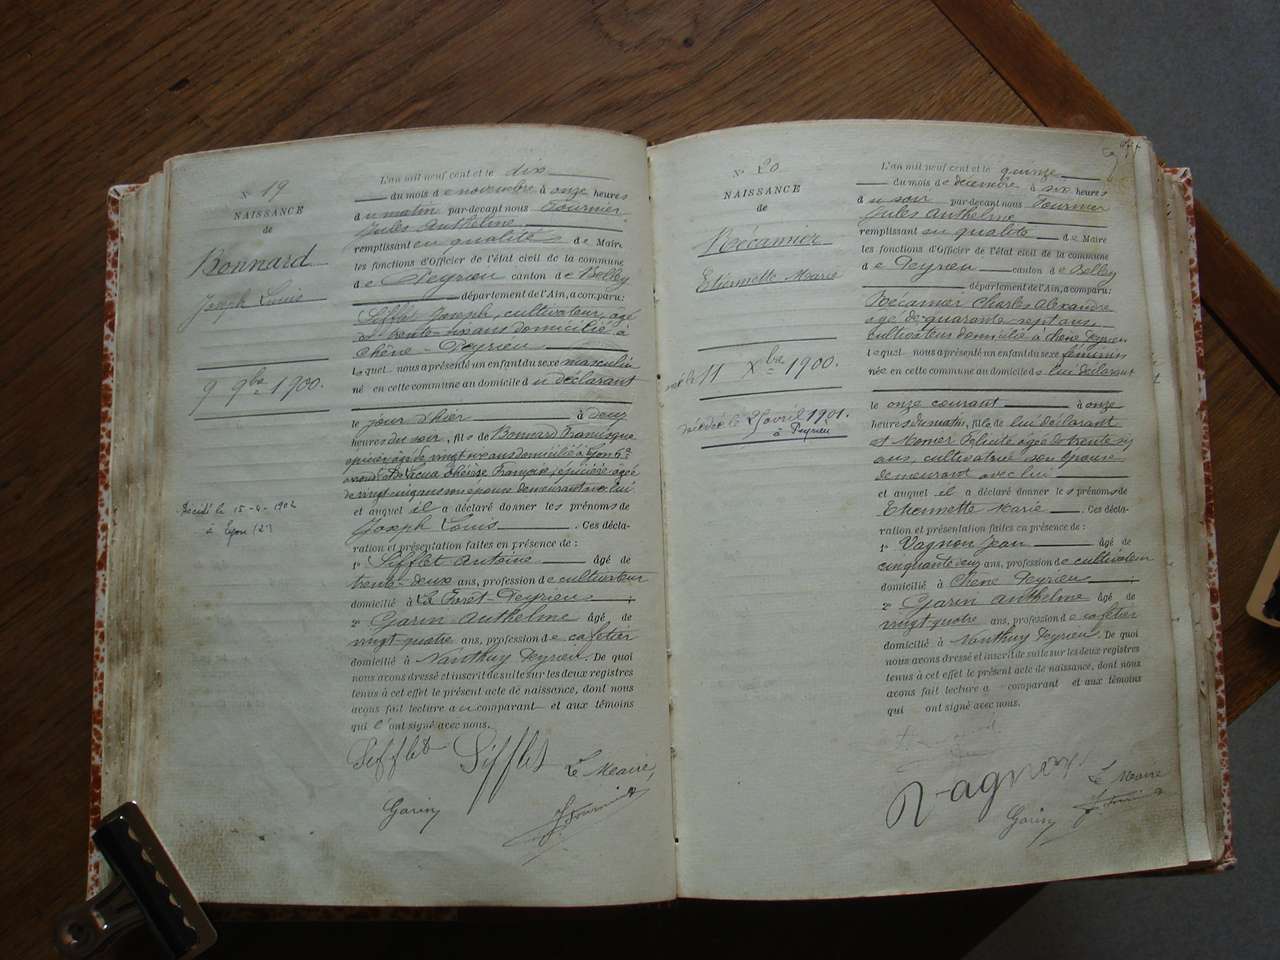 N° 19
NAISSANCE
de
Bonnard
Joseph Louis
9 9bre 1900.
Décédé le 15-4-1902
à Lyon (2)
L'an mil neuf cent et le dix
du mois de novembre à onze heures
du matin par-devant nous Fournier
Jules Anthelme
remplissant en qualité de Maire
les fonctions d'Officier de l'état civil de la commune
de Peyrieu canton de Belley
département de l'Ain, a comparu:
Sifflet Joseph, cultivateur, agé
de trente-six ans domicilié à
Chêne-Peyrieu
lequel nous a présenté un enfant du sexe masculin
né en cette commune au domicile du déclarant
le jour d'hier à deux
heures du soir, fils de Bonnard Francisque
épicier agé de vingt six ans domicilié à Lyon
Thérèse Françoise, épicière agée
de vingt cinq ans son épouse demeurant avec lui
et auquel il a déclaré donner les prénoms de
Joseph Louis. Ces décla-
ration et présentation faites en présence de:
1° Sifflet Antoine âgé de
trente-deux ans, profession de cultivateur
domicilié à La Forêt-Peyrieu;
2° Garin Anthelme âgé de
vingt-quatre ans, profession de cafetier
domicilié à Nanthuy Peyrieu. De quoi
nous avons dressé et inscrit de suite sur les deux registres
tenus à cet effet le présent acte de naissance, dont nous
avons fait lecture au comparant et aux témoins
qui l'ont signé avec nous.
Sifflet Sifflet Le Maire,
Garin J. Fournier
N° 20
NAISSANCE
de
Récamier
Etiennette Marie
née le 11 Xbre 1900.
décédée le avril 1901.
à Peyrieu
L'an mil neuf cent et le quinze
du mois de décembre à six heures
du soir par-devant nous Fournier
Jules Anthelme
remplissant en qualité de Maire
les fonctions d'Officier de l'état civil de la commune
de Peyrieu canton de Belley
département de l'Ain, a comparu:
Récamier Charles Alexandre
agé de quarante sept ans,
cultivateur domicilié à Chêne Peyrieu
lequel nous a présenté un enfant du sexe féminin
née en cette commune au domicile de lui déclarant
le onze courant à onze
heures du matin, fille de lui déclarant
et agée de trente six
ans, cultivatrice son épouse
demeurant avec lui
et auquel il a déclaré donner les prénoms de
Etiennette Marie. Ces décla-
ration et présentation faites en présence de:
1° Vagnon Jean âgé de
cinquante deux ans, profession de cultivateur
domicilié à Chêne Peyrieu;
2° Garin Anthelme âgé de
vingt quatre ans, profession de cafetier
domicilié à Nanthuy Peyrieu. De quoi
nous avons dressé et inscrit de suite sur les deux registres
tenus à cet effet le présent acte de naissance, dont nous
avons fait lecture a comparant et aux témoins
qui ont signé avec nous.
Vagnon Le Maire
Garin J. Fournier